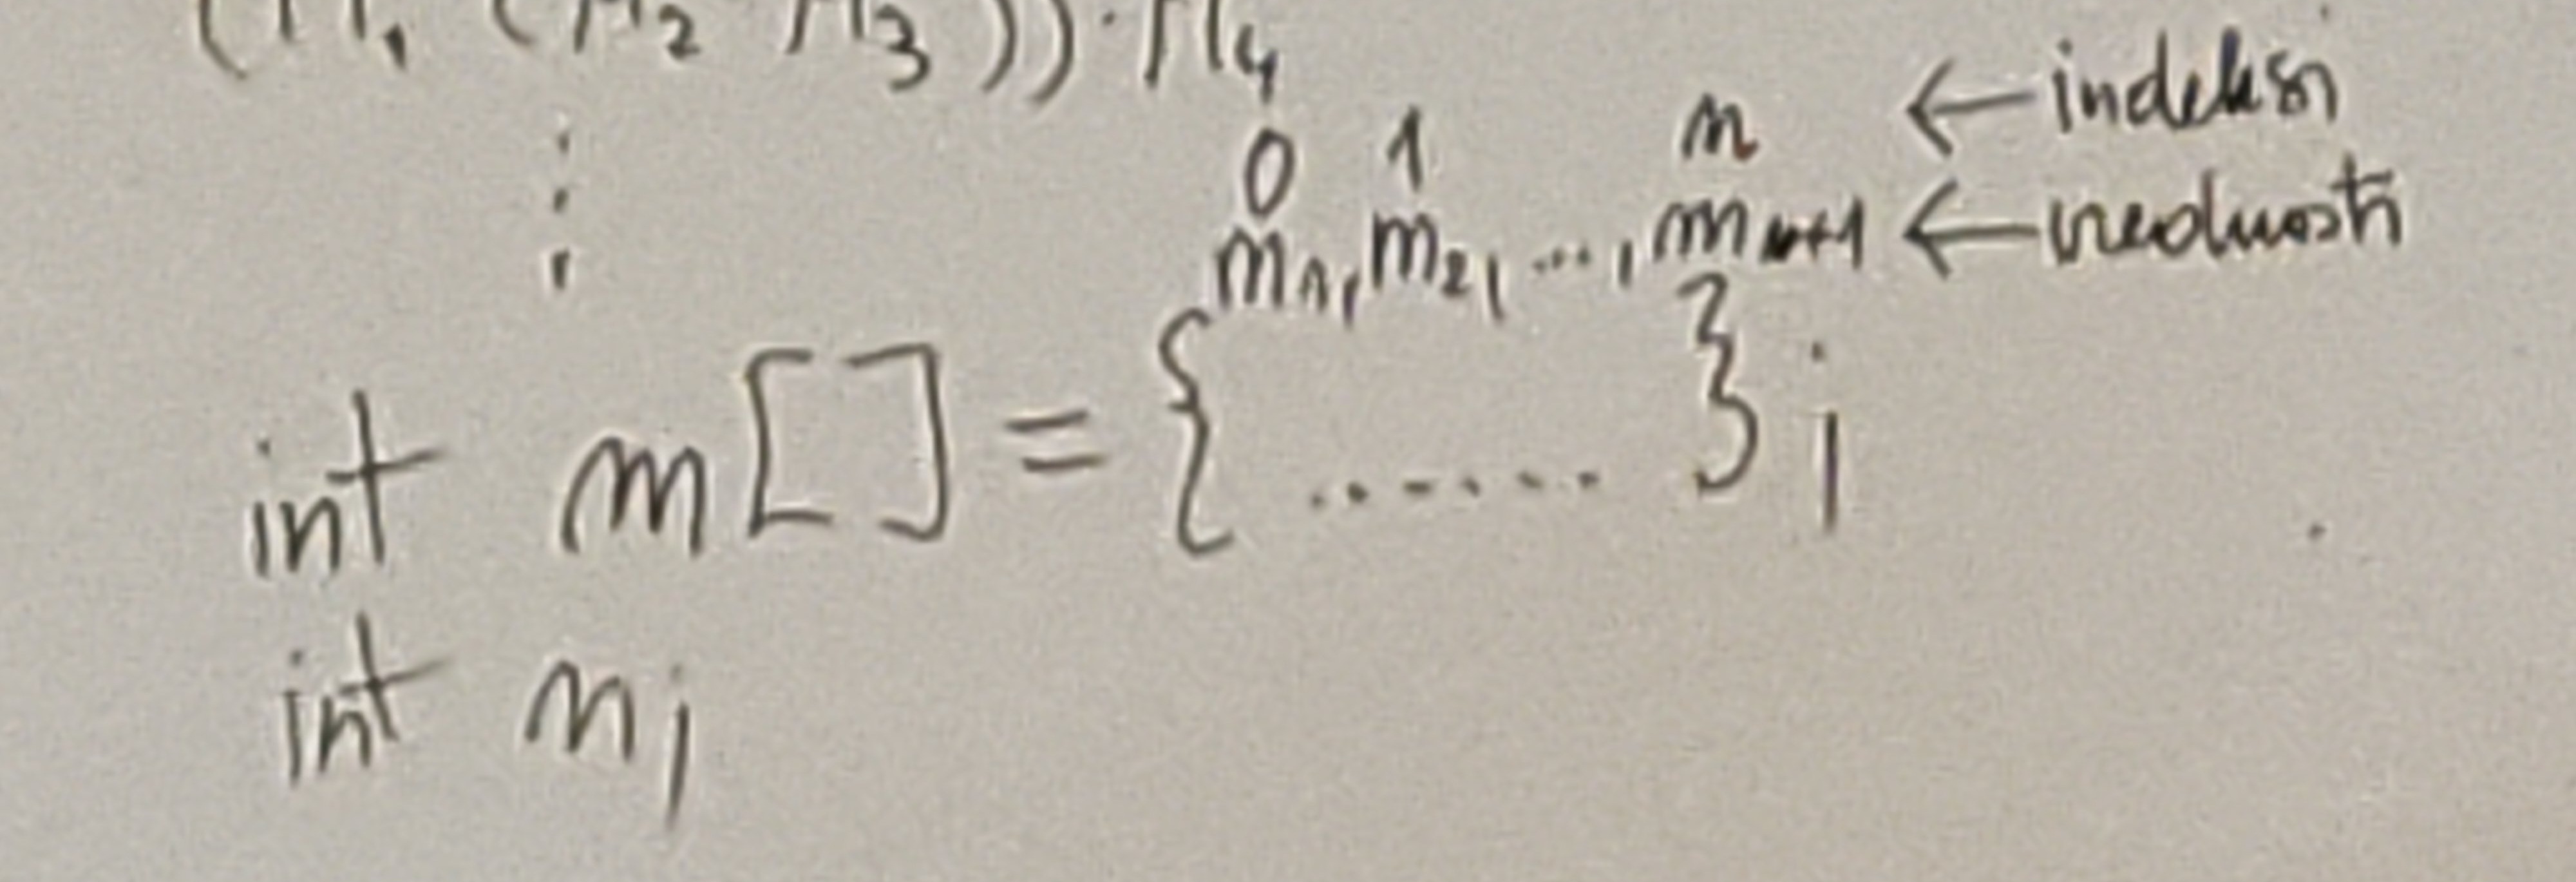 (M₁ (M₂ M₃))·M₄
0 1 n ← indeksi
m₁, m₂, ..., mₙ₊₁ ← vrednosti
int m[] = { ...... };
int n;